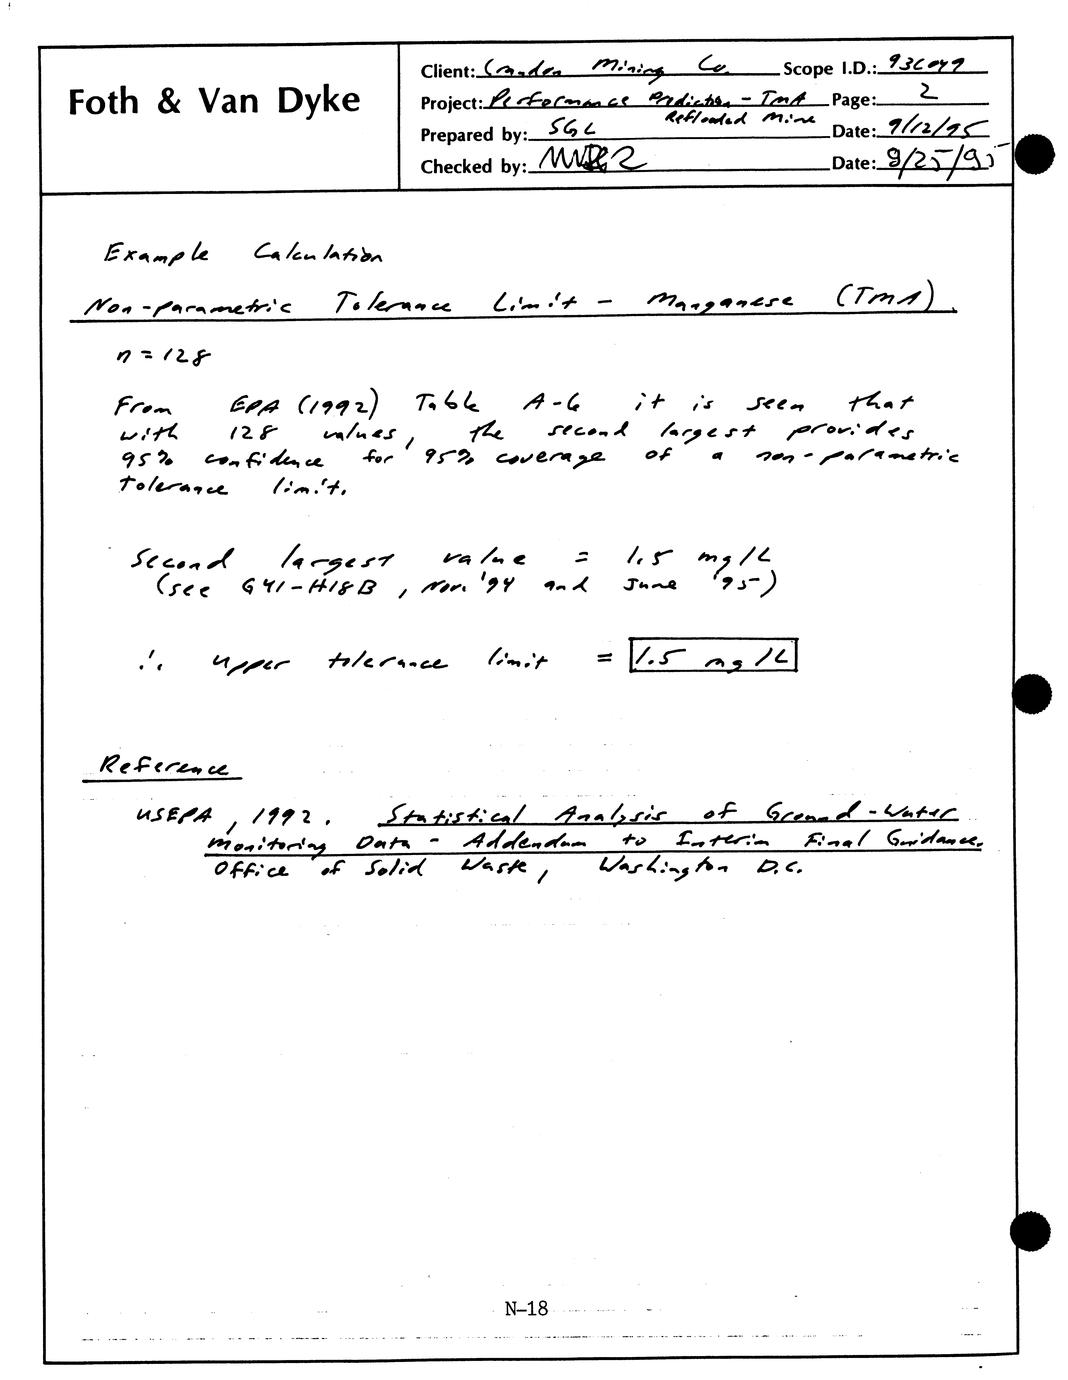 Foth & Van Dyke
Client: Crandon Mining Co. Scope I.D.: 93C049
Project: Performance Prediction - TMA Page: 2
Reflooded Mine
Prepared by: SGL Date: 9/12/95
Checked by: Date: 9/25/95
Example Calculation
Non-parametric Tolerance Limit - Manganese (TMA)
n = 128
From EPA (1992) Table A-6 it is seen that
with 128 values, the second largest provides
95% confidence for 95% coverage of a non-parametric
tolerance limit.
Second largest value = 1.5 mg/L
(see G41-H18B, Nov. '94 and June '95)
∴ upper tolerance limit = 1.5 mg/L
Reference
USEPA, 1992. Statistical Analysis of Ground-Water
Monitoring Data - Addendum to Interim Final Guidance.
Office of Solid Waste, Washington D.C.
N-18